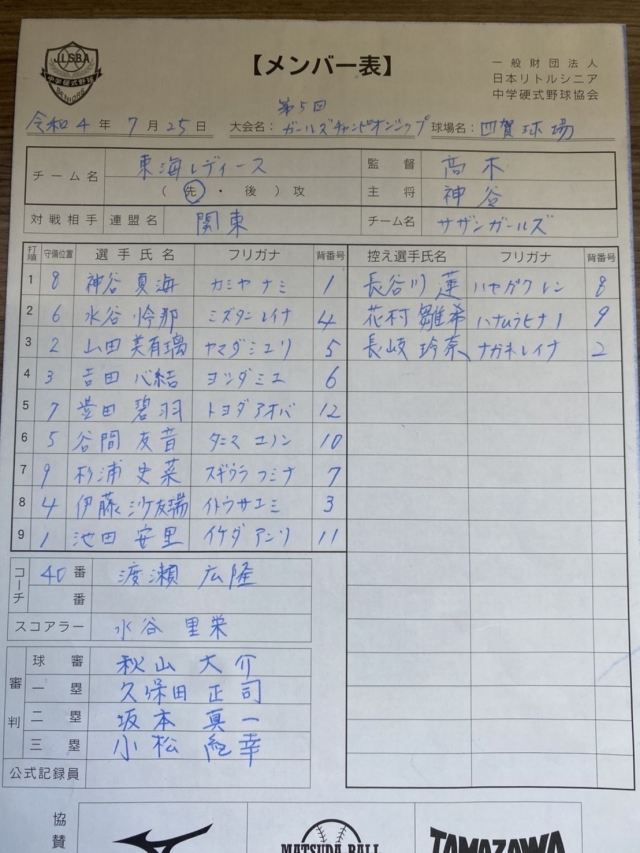 JLSBA
中学硬式野球
【メンバー表】
一般財団法人
日本リトルシニア
中学硬式野球協会
令和4年7月25日 大会名: 第5回ガールズチャンピオンシップ 球場名: 四賀球場
チーム名 東海レディース 監督 高木
(先・後)攻 主将 神谷
対戦相手 連盟名 関東 チーム名 サザンガールズ
打順 守備位置 選手氏名 フリガナ 背番号 控え選手氏名 フリガナ 背番号
1 8 神谷 真海 カミヤ ナミ 1 長谷川 蓮 ハセガワ レン 8
2 6 水谷 怜那 ミズタニ レイナ 4 花村 雛希 ハナムラヒナノ 9
3 2 山田 美有瑠 ヤマダミユリ 5 長岐 玲奈 ナガキレイナ 2
4 3 吉田 心結 ヨシダミユ 6
5 7 豊田 碧羽 トヨダアオバ 12
6 5 谷間 友音 タニマ ユノン 10
7 9 杉浦 史菜 スギウラ フミナ 7
8 4 伊藤 沙友瑞 イトウサユミ 3
9 1 池田 安里 イケダ アンリ 11
コーチ 40番 渡瀬 広隆
番
スコアラー 水谷 里栄
審判
球審 秋山 大介
一塁 久保田 正司
二塁 坂本 真一
三塁 小松 紀幸
公式記録員
協賛
MATSUDA BALL
TAMAZAWA